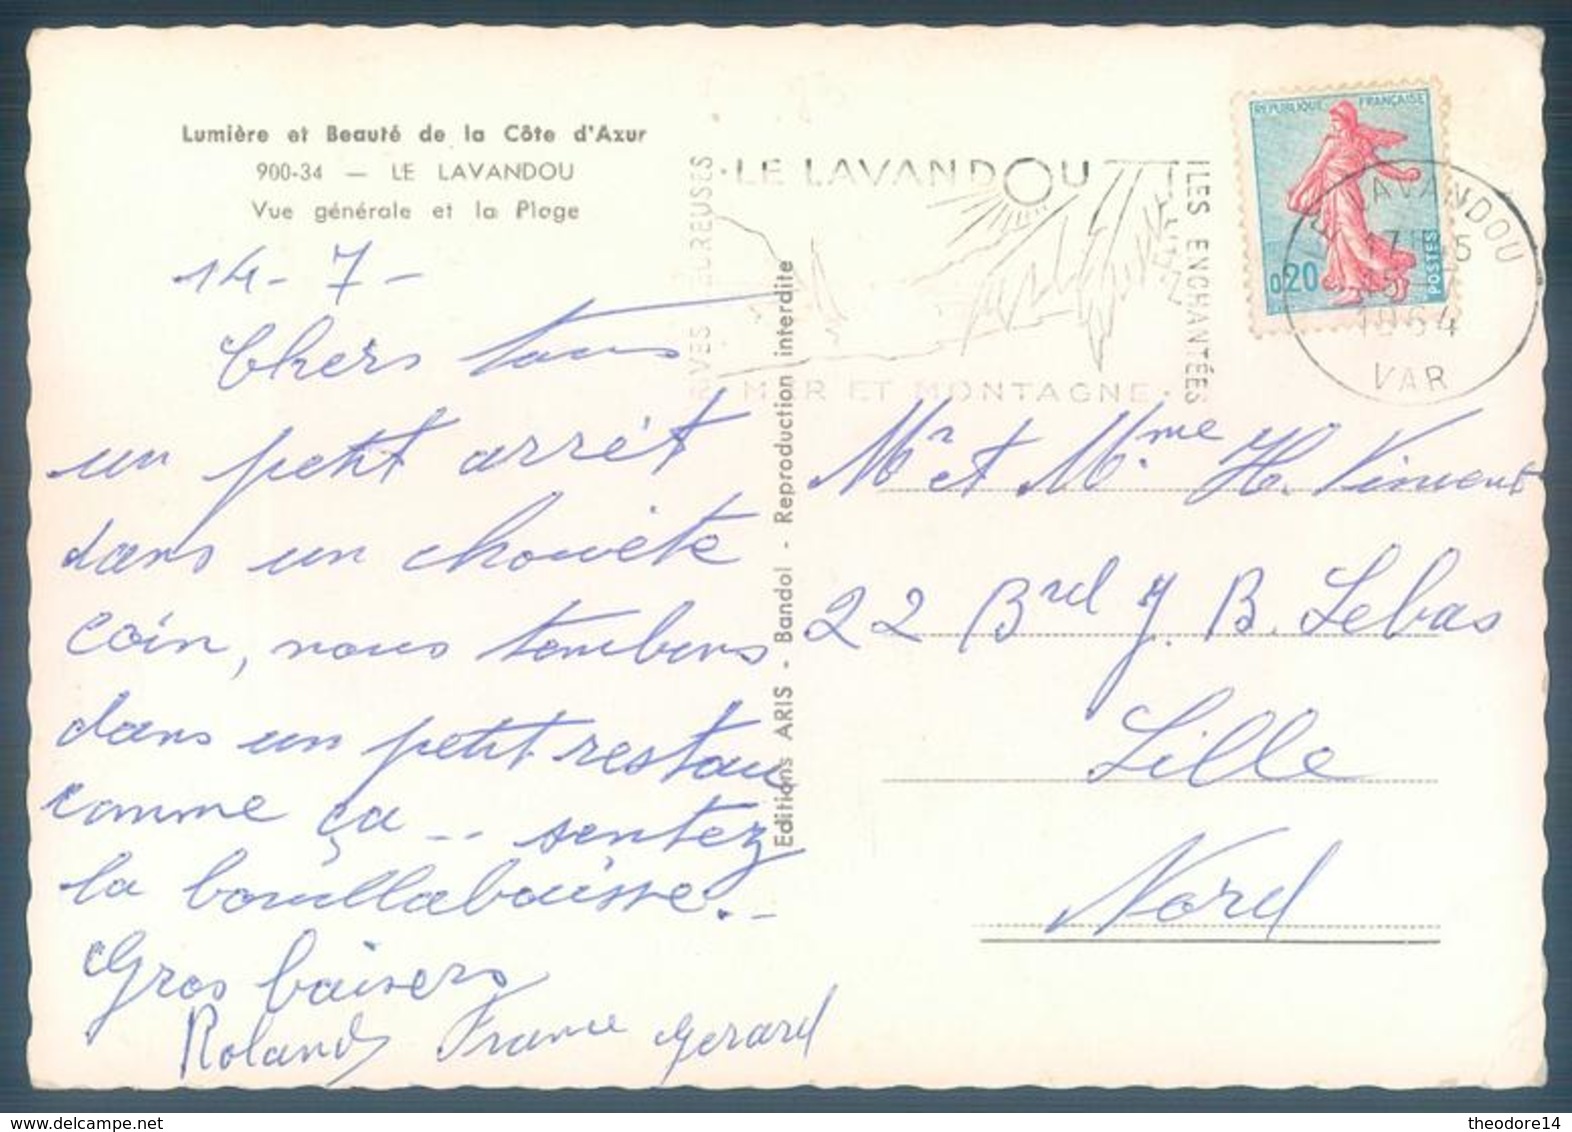 Lumière et Beauté de la Côte d'Azur
900-34 — LE LAVANDOU
Vue générale et la Plage
14-7-
Chers tous
un petit arrêt
dans un chouète
coin, nous tombons
dans un petit restau
comme ça... sentez
la bouillabaisse.-
Gros baisers
Roland France Gérard
Editions ARIS - Bandol - Reproduction interdite
LE LAVANDOU
ILES ENCHANTÉES
MER ET MONTAGNE
REPUBLIQUE FRANÇAISE
0,20
POSTES
LE LAVANDOU
1964
VAR
Mr et Mme H. Vincent
22 Brel J. B. Lebas
Lille
Nord
theodore14